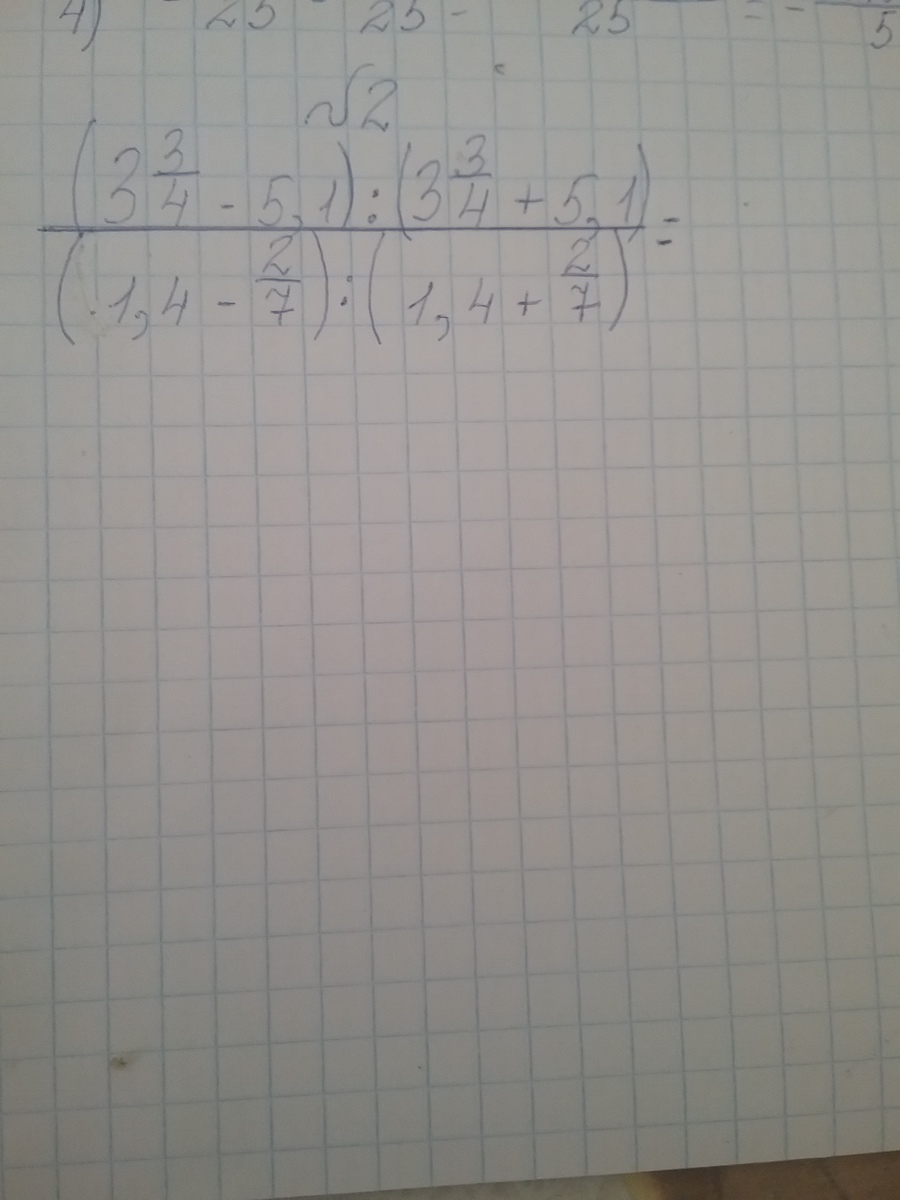 4) - 25 - 25 - 25 = - 5
√2
(3 3/4 - 5,1) : (3 3/4 + 5,1)
(1,4 - 2/7) : (1,4 + 2/7) =